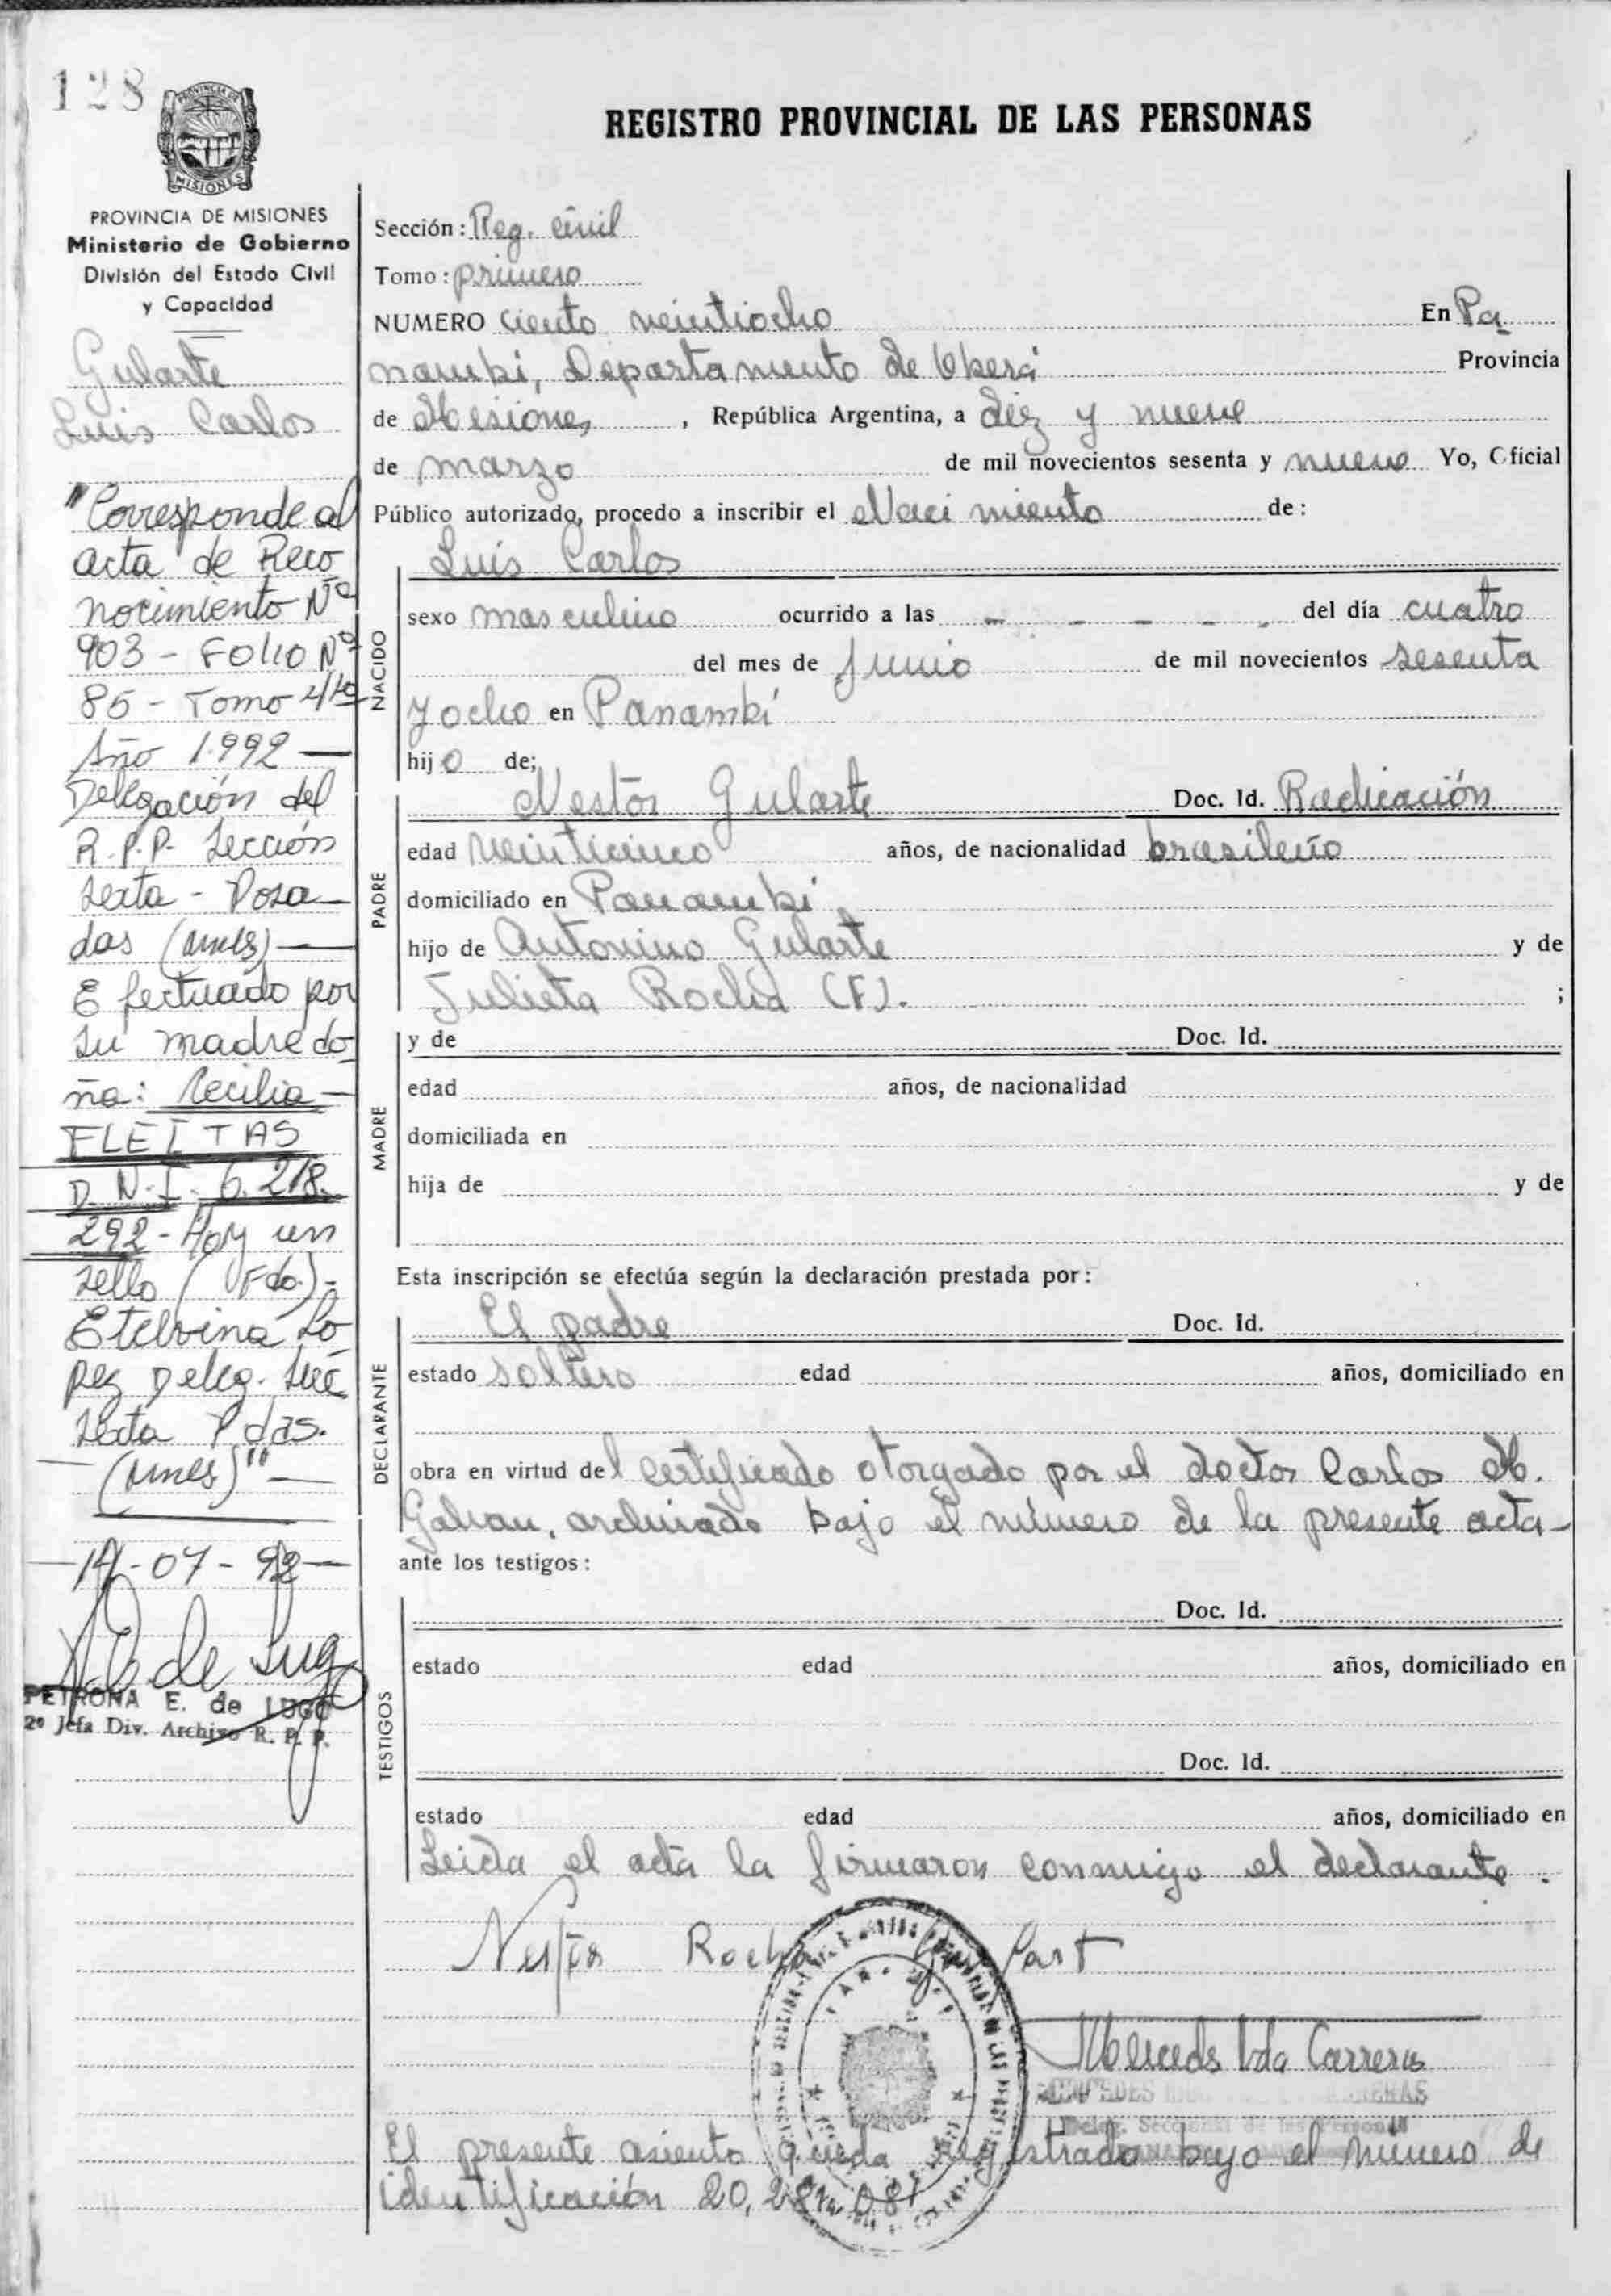 128
PROVINCIA DE MISIONES
REGISTRO PROVINCIAL DE LAS PERSONAS
PROVINCIA DE MISIONES
Ministerio de Gobierno
División del Estado Civil
y Capacidad
Gularte
Luis Carlos
"Corresponde al
acta de Reco
nocimiento Nº
903 - Folio Nº
85 - Tomo 4/to
Año 1.992 —
Delegación del
R.P.P. Sección
sexta - Posa
das (Mnes) —
Efectuado por
su madre do
ña: Cecilia —
FLEITAS
D.N.I. 6.218.
292 - Hay un
sello (Fdo.) -
Etelvina Lo
pez Deleg. Secc
sexta Pdas.
— (Mnes)" —
— 14-07-92 —
de Lugo
PETRONA E. de LUGO
2º Jefa Div. Archivo R. P. P.
Sección: Reg. civil
Tomo: primero
NUMERO ciento veintiocho En Pa
nambi, Departamento de Oberá Provincia
de Misiones, República Argentina, a diez y nueve
de marzo de mil novecientos sesenta y nueve Yo, Oficial
Público autorizado, procedo a inscribir el Naci miento de:
Luis Carlos
NACIDO
sexo masculino ocurrido a las - - - - - del día cuatro
del mes de Junio de mil novecientos sesenta
y ocho en Panambí
hijo de;
PADRE
Nestor Gularte Doc. Id. Radicación
edad veinticinco años, de nacionalidad brasileño
domiciliado en Panambi
hijo de Antonino Gularte y de
Julieta Rocha (F). ;
MADRE
y de Doc. Id.
edad años, de nacionalidad
domiciliada en
hija de y de
Esta inscripción se efectúa según la declaración prestada por:
DECLARANTE
El padre Doc. Id.
estado soltero edad años, domiciliado en
obra en virtud del certificado otorgado por el doctor Carlos M.
Galvan, archivado bajo el número de la presente acta-
ante los testigos:
TESTIGOS
Doc. Id.
estado edad años, domiciliado en
Doc. Id.
estado edad años, domiciliado en
Leida el acta la firmaron conmigo el declarante.
Nestor Rocha
Mercedes Carreras
El presente asiento queda registrado bajo el número de
identificación